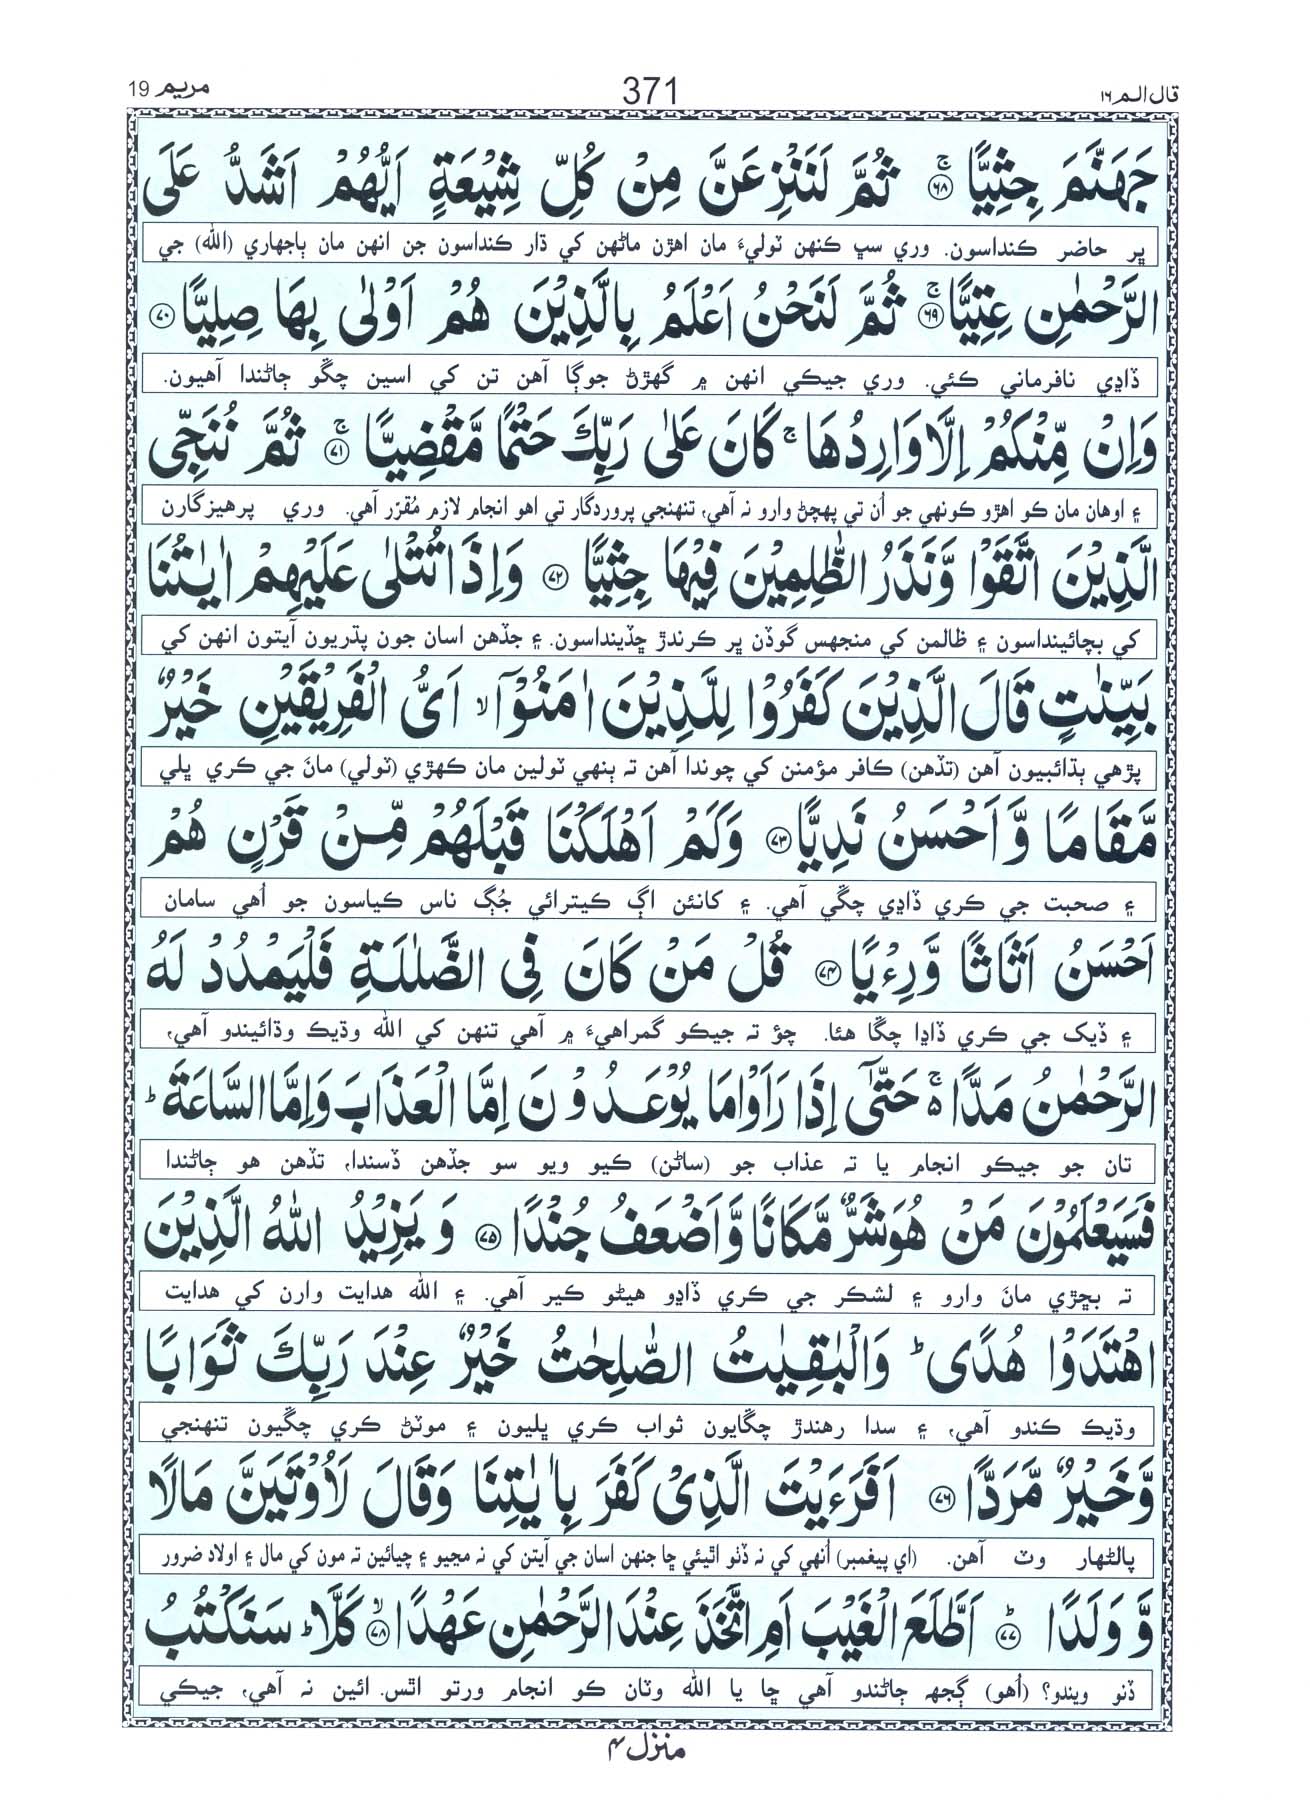 قال الم ۱۶
371
مريم 19
جَهَنَّمَ جِثِيًّا ۚ ﴿۶۸﴾ ثُمَّ لَنَنْزِعَنَّ مِنْ كُلِّ شِيْعَةٍ اَيُّهُمْ اَشَدُّ عَلَى
ڀر حاضر ڪنداسون. وري سڀ ڪنهن ٽوليءَ مان اهڙن ماڻهن کي ڌار ڪنداسون جن انهن مان ٻاجهاري (الله) جي
الرَّحْمٰنِ عِتِيًّا ۚ ﴿۶۹﴾ ثُمَّ لَنَحْنُ اَعْلَمُ بِالَّذِيْنَ هُمْ اَوْلٰى بِهَا صِلِيًّا ﴿۷۰﴾
ڏاڍي نافرماني ڪئي. وري جيڪي انهن ۾ گهڙڻ جوڳا آهن تن کي اسين چڱو ڄاڻندا آهيون.
وَاِنْ مِّنْكُمْ اِلَّا وَارِدُهَا ۚ كَانَ عَلٰى رَبِّكَ حَتْمًا مَّقْضِيًّا ۚ ﴿۷۱﴾ ثُمَّ نُنَجِّى
۽ اوهان مان ڪو اهڙو ڪونهي جو اُن تي پهچڻ وارو نہ آهي، تنهنجي پروردگار تي اهو انجام لازم مُقرّر آهي. وري پرهيزگارن
الَّذِيْنَ اتَّقَوْا وَّنَذَرُ الظّٰلِمِيْنَ فِيْهَا جِثِيًّا ﴿۷۲﴾ وَاِذَا تُتْلٰى عَلَيْهِمْ اٰيٰتُنَا
کي بچائينداسون ۽ ظالمن کي منجهس گوڏن ڀر ڪرندڙ ڇڏينداسون. ۽ جڏهن اسان جون پڌريون آيتون انهن کي
بَيِّنٰتٍ قَالَ الَّذِيْنَ كَفَرُوْا لِلَّذِيْنَ اٰمَنُوْٓا ۙ اَىُّ الْفَرِيْقَيْنِ خَيْرٌ
پڙهي ٻڌائبيون آهن (تڏهن) ڪافر مؤمنن کي چوندا آهن تہ ٻنهي ٽولين مان ڪهڙي (ٽولي) مانَ جي ڪري ڀلي
مَّقَامًا وَّاَحْسَنُ نَدِيًّا ﴿۷۳﴾ وَكَمْ اَهْلَكْنَا قَبْلَهُمْ مِّنْ قَرْنٍ هُمْ
۽ صحبت جي ڪري ڏاڍي چڱي آهي. ۽ کانئن اڳ ڪيترائي جُڳ ناس ڪياسون جو اُهي سامان
اَحْسَنُ اَثَاثًا وَّرِءْيًا ﴿۷۴﴾ قُلْ مَنْ كَانَ فِى الضَّلٰلَةِ فَلْيَمْدُدْ لَهُ
۽ ڏيک جي ڪري ڏاڍا چڱا هئا. چؤ تہ جيڪو گمراهيءَ ۾ آهي تنهن کي الله وڌيڪ وڌائيندو آهي،
الرَّحْمٰنُ مَدًّا ۚ۬ حَتّٰٓى اِذَا رَاَوْا مَا يُوْعَدُوْنَ اِمَّا الْعَذَابَ وَاِمَّا السَّاعَةَ ؕ
تان جو جيڪو انجام يا تہ عذاب جو (ساڻن) ڪيو ويو سو جڏهن ڏسندا، تڏهن هو ڄاڻندا
فَسَيَعْلَمُوْنَ مَنْ هُوَ شَرٌّ مَّكَانًا وَّاَضْعَفُ جُنْدًا ﴿۷۵﴾ وَيَزِيْدُ اللّٰهُ الَّذِيْنَ
تہ بڇڙي مانَ وارو ۽ لشڪر جي ڪري ڏاڍو هيڻو ڪير آهي. ۽ الله هدايت وارن کي هدايت
اهْتَدَوْا هُدًى ؕ وَالْبٰقِيٰتُ الصّٰلِحٰتُ خَيْرٌ عِنْدَ رَبِّكَ ثَوَابًا
وڌيڪ ڪندو آهي، ۽ سدا رهندڙ چڱايون ثواب ڪري ڀليون ۽ موٽڻ ڪري چڱيون تنهنجي
وَّخَيْرٌ مَّرَدًّا ﴿۷۶﴾ اَفَرَءَيْتَ الَّذِىْ كَفَرَ بِاٰيٰتِنَا وَقَالَ لَاُوْتَيَنَّ مَالًا
پالڻهار وٽ آهن. (اي پيغمبر) اُنهي کي نہ ڏٺو اٿيئي ڇا جنهن اسان جي آيتن کي نہ مڃيو ۽ چيائين تہ مون کي مال ۽ اولاد ضرور
وَّوَلَدًا ؕ ﴿۷۷﴾ اَطَّلَعَ الْغَيْبَ اَمِ اتَّخَذَ عِنْدَ الرَّحْمٰنِ عَهْدًا ۙ ﴿۷۸﴾ كَلَّا ؕ سَنَكْتُبُ
ڏنو ويندو؟ (اُهو) ڳجهہ ڄاڻندو آهي ڇا يا الله وٽان ڪو انجام ورتو اٿس. ائين نہ آهي، جيڪي
منزل ۴